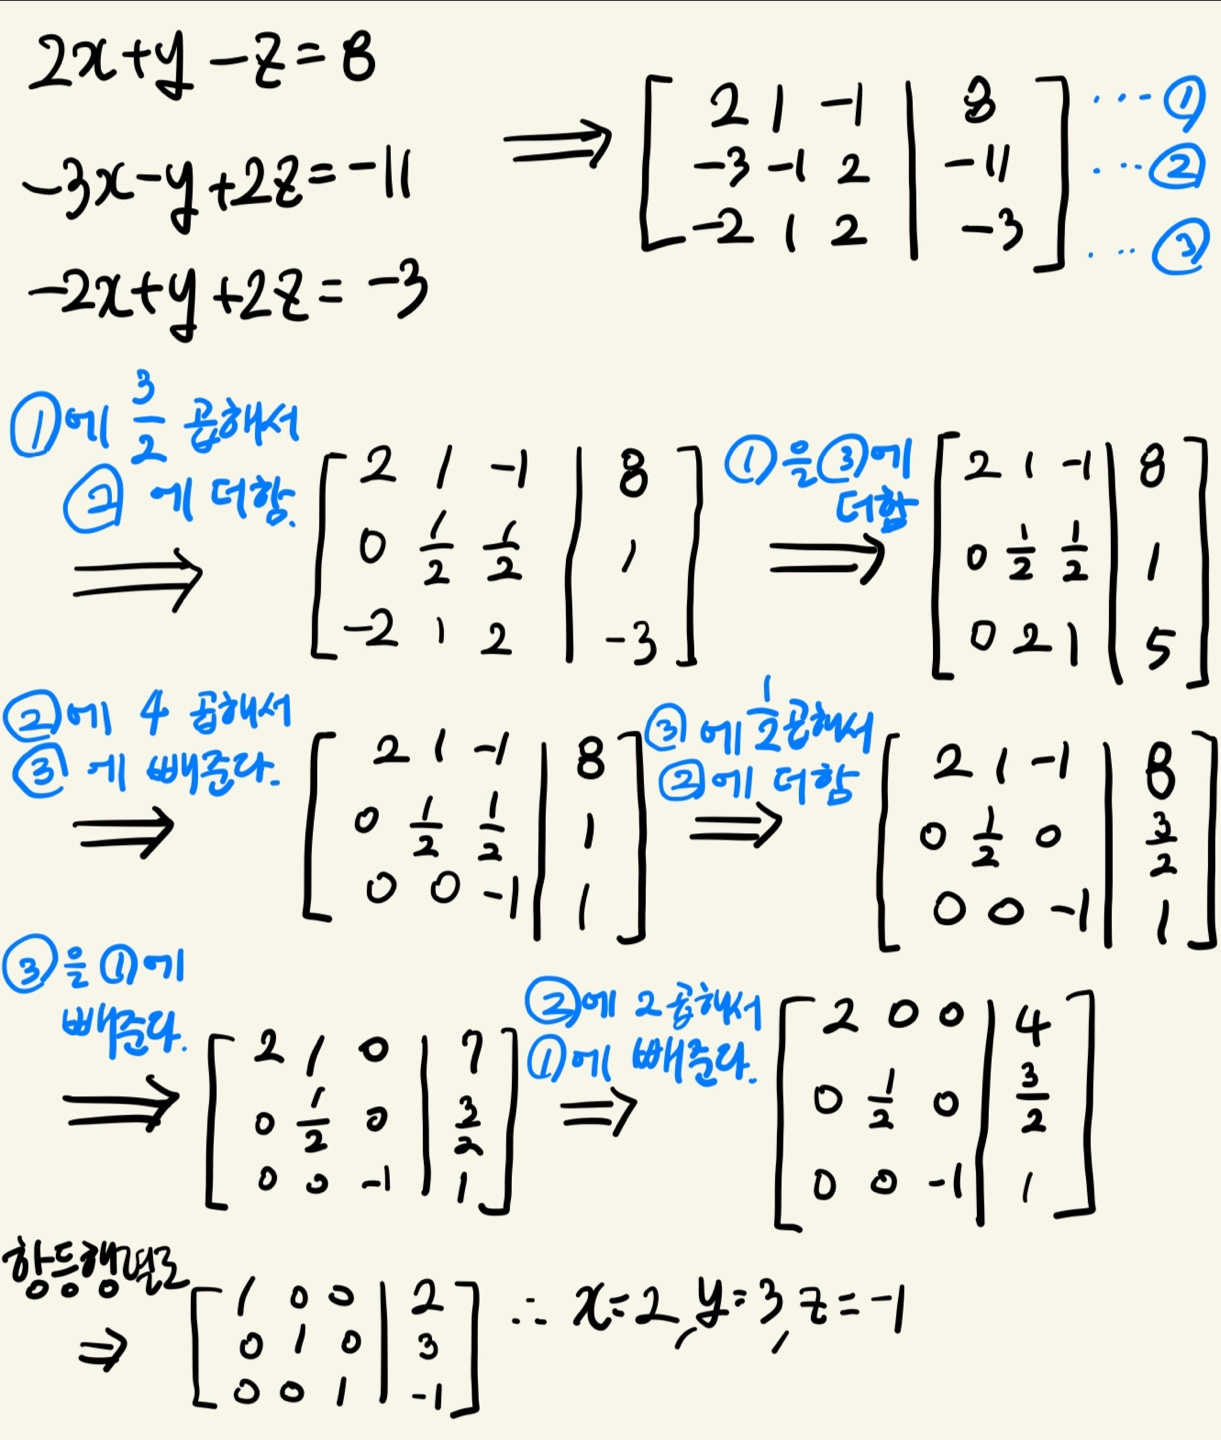 2x+y-z=8
-3x-y+2z=-11
-2x+y+2z=-3
⇒
[ 2 1 -1 | 8 ] ···①
[ -3 -1 2 | -11 ] ···②
[ -2 1 2 | -3 ] ···③
①에 3/2 곱해서
②에 더함.
⇒
[ 2 1 -1 | 8 ]
[ 0 1/2 1/2 | 1 ]
[ -2 1 2 | -3 ]
①을 ③에
더함
⇒
[ 2 1 -1 | 8 ]
[ 0 1/2 1/2 | 1 ]
[ 0 2 1 | 5 ]
②에 4 곱해서
③에 빼준다.
⇒
[ 2 1 -1 | 8 ]
[ 0 1/2 1/2 | 1 ]
[ 0 0 -1 | 1 ]
③에 1/2곱해서
②에 더함
⇒
[ 2 1 -1 | 8 ]
[ 0 1/2 0 | 3/2 ]
[ 0 0 -1 | 1 ]
③을 ①에
빼준다.
⇒
[ 2 1 0 | 7 ]
[ 0 1/2 0 | 3/2 ]
[ 0 0 -1 | 1 ]
②에 2곱해서
①에 빼준다.
⇒
[ 2 0 0 | 4 ]
[ 0 1/2 0 | 3/2 ]
[ 0 0 -1 | 1 ]
항등행렬로
⇒
[ 1 0 0 | 2 ]
[ 0 1 0 | 3 ]
[ 0 0 1 | -1 ]
∴ x=2, y=3, z=-1